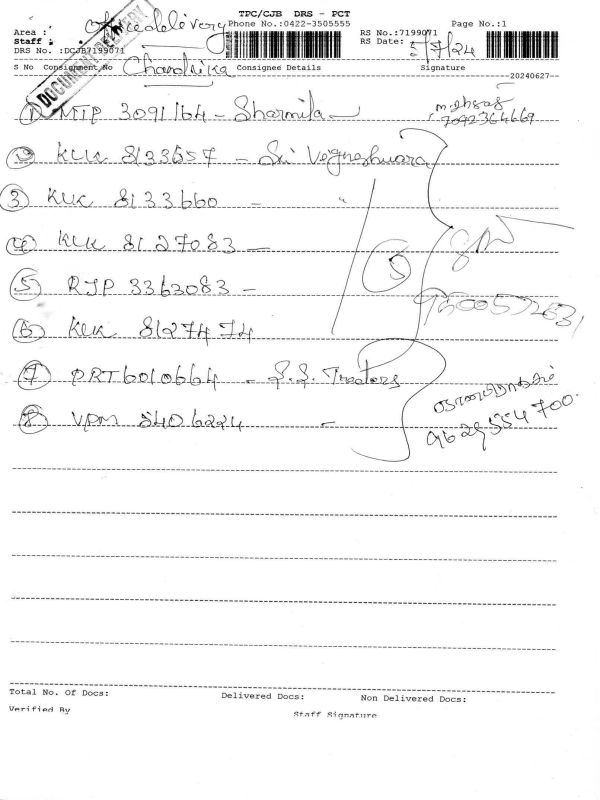 TPC/CJB DRS - PCT
Area : Office delivery Phone No.:0422-3505555 RS No.:7199071 Page No.:1
Staff : RS Date: 5/7/24
DRS No. :DCJB7199071
DOCUMENT DELIVERY
S No Consignment No Chandrika Consignee Details Signature
--20240627--
① MTP 3091164 - Sharmila
7092364669
② KUK 8133657 - Sri Vegneshwara
③ KUK 8133660 - "
④ KUK 8127083 -
⑤ RJP 3363083 - ⑤
⑥ KUK 8127474
⑦ PRT6010664 - S.S. Traders
⑧ VPM 5406224 -
9629554700
Total No. Of Docs: Delivered Docs: Non Delivered Docs:
Verified By Staff Signature